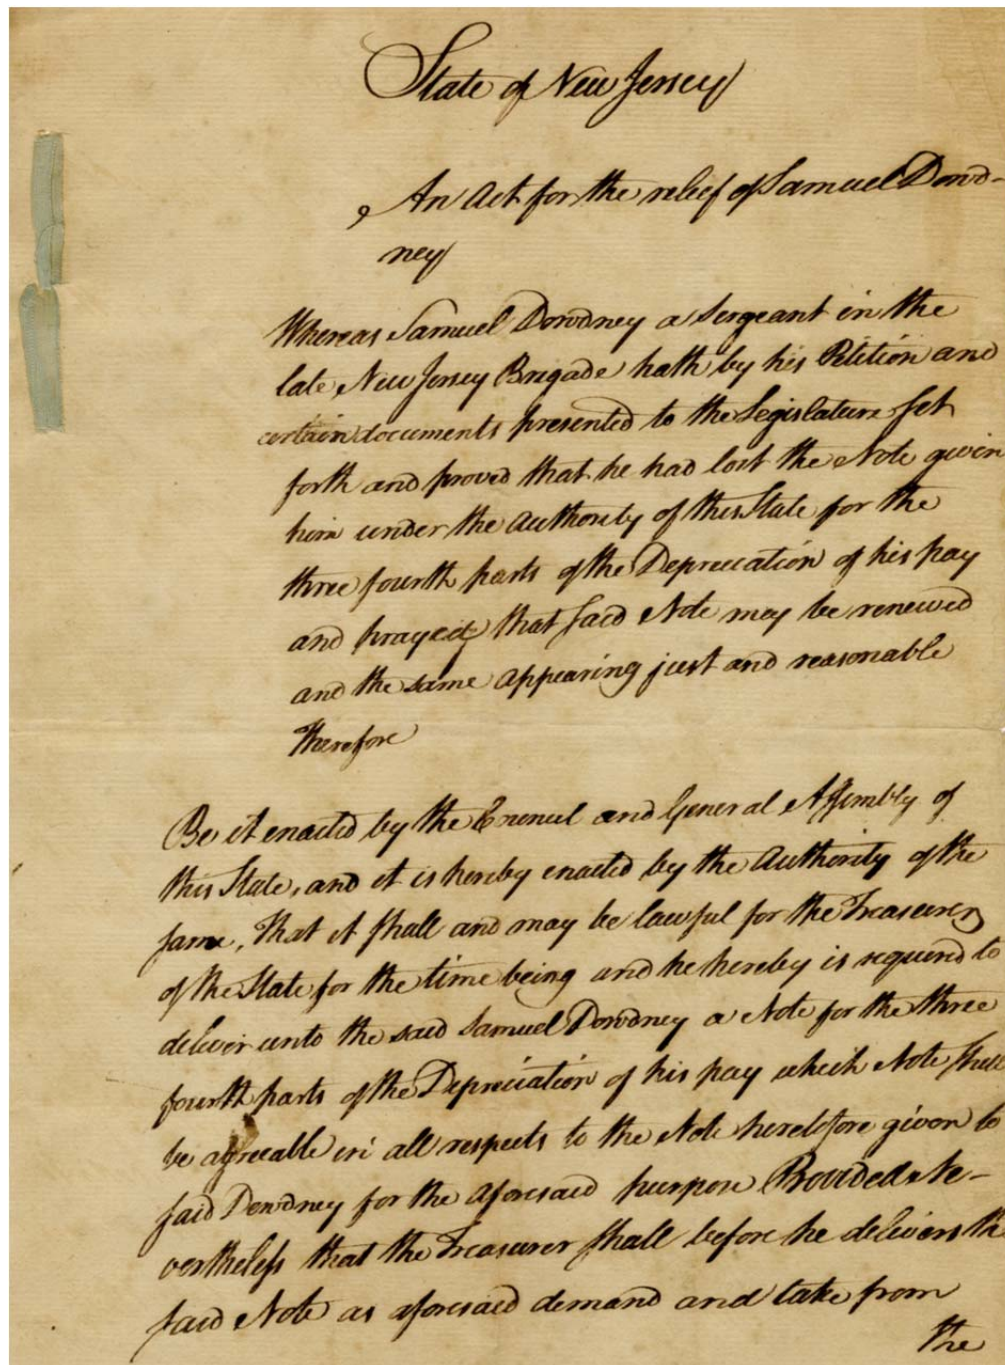 State of New Jersey
An Act for the relief of Samuel Dowd-
ney
Whereas Samuel Dowdney a Sergeant in the
late New Jersey Brigade hath by his Petition and
certain documents presented to the Legislature set
forth and proved that he had lost the Note given
him under the Authority of this State for the
three fourth parts of the Depreciation of his pay
and prayed that said Note may be renewed
and the same appearing just and reasonable
Therefore
Be it enacted by the Council and General Assembly of
this State, and it is hereby enacted by the Authority of the
same, That it shall and may be lawful for the Treasurer
of the State for the time being and he hereby is required to
deliver unto the said Samuel Dowdney a Note for the three
fourth parts of the Depreciation of his pay which Note shall
be agreeable in all respects to the Note heretofore given to
said Dowdney for the aforesaid purpose Provided Ne-
vertheless that the Treasurer shall before he delivers the
said Note as aforesaid demand and take from
the